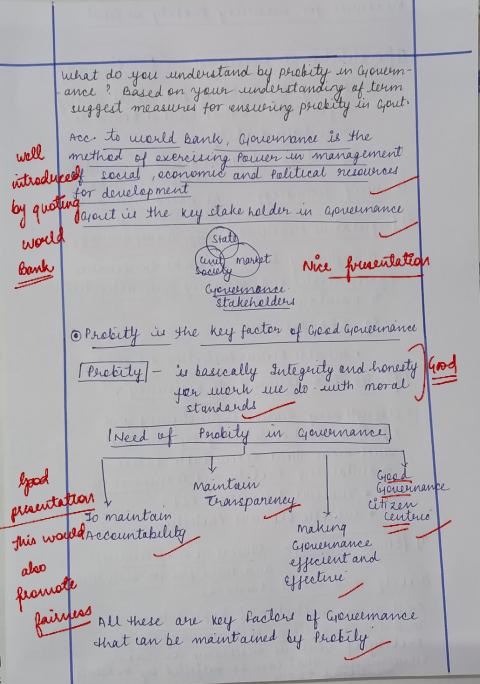 What do you understand by probity in Govern-
ance? Based on your understanding of term
suggest measures for ensuring probity in Govt.
Acc. to world Bank, Governance is the
method of exercising Power in management
of social, economic and Political resources
for development
Govt is the key stake holder in Governance
well
introduced
by quoting
world
Bank
State
Civil
Society
market
Governance
Stakeholders
Nice presentation
Probity is the key factor of Good Governance
Probity - is basically Integrity and honesty
for work we do with moral
standards
Good
Need of Probity in Governance
To maintain
Accountability
Maintain
Transparency
Making
Governance
efficient and
Effective
Good
Governance
Citizen
Centric
Good
presentation
This would
also
promote
fairness
All these are key factors of Governance
that can be maintained by Probity